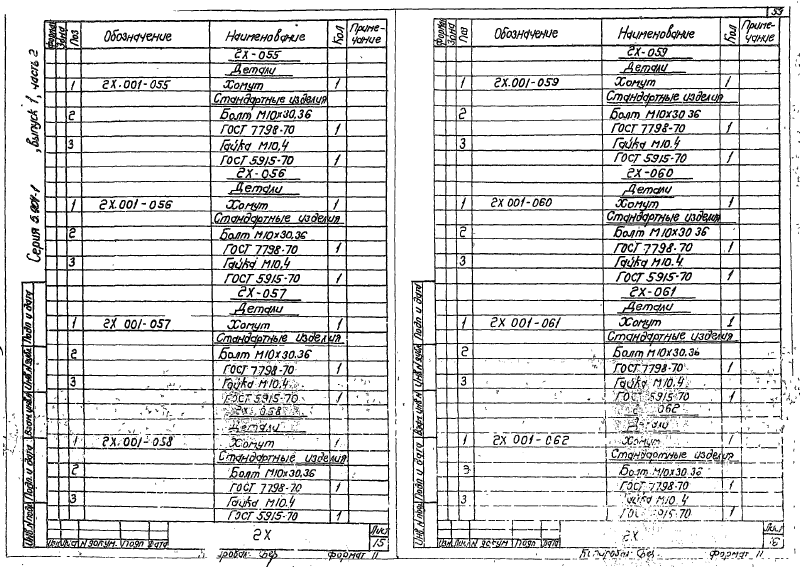 Серия 5.904-1, выпуск 1, часть 2
Форма Зона Поз Обозначение Наименование Кол Приме-чание
2Х-055
Детали
1 2Х.001-055 Хомут 1
Стандартные изделия
2 Болт М10×30.36
ГОСТ 7798-70 1
3 Гайка М10.4
ГОСТ 5915-70 1
2Х-056
Детали
1 2Х.001-056 Хомут 1
Стандартные изделия
2 Болт М10×30.36
ГОСТ 7798-70 1
3 Гайка М10.4
ГОСТ 5915-70 1
2Х-057
Детали
1 2Х 001-057 Хомут 1
Стандартные изделия
2 Болт М10×30.36
ГОСТ 7798-70 1
3 Гайка М10.4
ГОСТ 5915-70 1
2Х-058
Детали
1 2Х.001-058 Хомут 1
Стандартные изделия
2 Болт М10×30.36
ГОСТ 7798-70 1
3 Гайка М10.4
ГОСТ 5915-70 1
Изм Лист N докум. Подп Дата
2Х
Лист
15
Формат 11
Инв.N подл Подп. и дата Взам.инв.N Инв.N дубл. Подп и дата
59
Форма Зона Поз Обозначение Наименование Кол Приме-чание
2Х-059
Детали
1 2Х.001-059 Хомут 1
Стандартные изделия
2 Болт М10×30 36
ГОСТ 7798-70 1
3 Гайка М10.4
ГОСТ 5915-70 1
2Х-060
Детали
1 2Х 001-060 Хомут 1
Стандартные изделия
2 Болт М10×30.36
ГОСТ 7798-70 1
3 Гайка М10.4
ГОСТ 5915-70 1
2Х-061
Детали
1 2Х 001-061 Хомут 1
Стандартные изделия
2 Болт М10×30.36
ГОСТ 7798-70 1
3 Гайка М10.4
ГОСТ 5915-70 1
062
Детали
1 2Х 001-062 Хомут 1
Стандартные изделия
Болт М10×30.36
ГОСТ 7798-70 1
3 Гайка М10.4
ГОСТ 5915-70 1
Изм Лист N докум Подп Дата
2Х
Лист
Формат 11
Инв.N подл Подп. и дата Взам.инв.N Инв.N дубл. Подп и дата